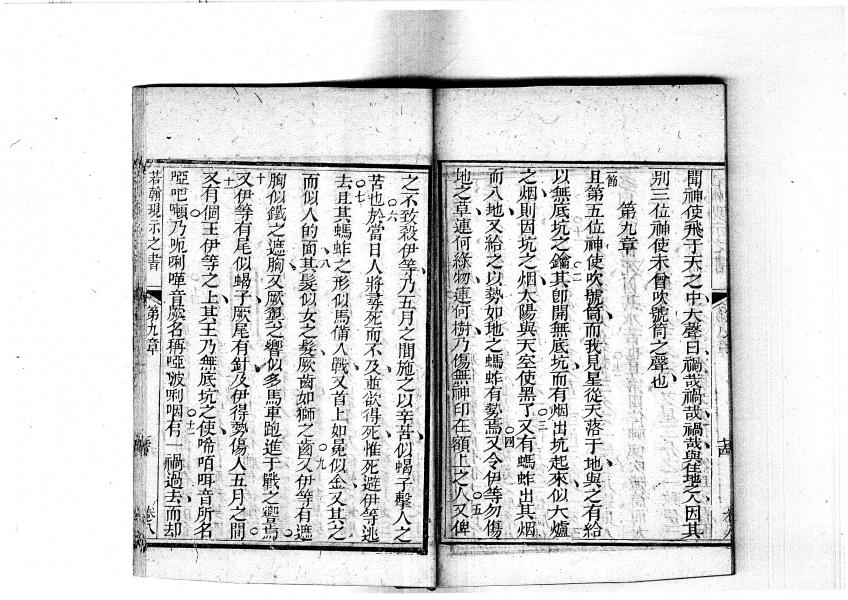 間神使飛于天之中大聲曰禍哉禍哉禍哉與在地之人因其
別三位神使未曾吹號筒之聲也
第九章
節
且第五位神使吹號筒而我見星從天落于地與之有給
以無底坑之鑰其卽開無底坑而有烟出坑起來似大爐
之烟則因坑之烟太陽與天空使黑了又有螞蚱出其烟
而八地又給之以勢如地之螞蚱有勢焉又令伊等勿傷
地之草連何綠物連何樹乃傷無神印在額上之人又俾
之不致殺伊等乃五月之間施之以辛苦似蝎子擊人之
苦也於當日人將尋死而不及並欲得死惟死避伊等逃
去且其螞蚱之形似馬備人戰又首上如冕似金又其之
而似人的面其髮似女之髮厥齒如獅之齒又伊等有遮
胸似鐵之遮胸又厥翼之響似多馬車跑進于戰之響焉
又伊等有尾似蝎子厥尾有針及伊得勢傷人五月之間
又有個王伊等之上其王乃無底坑之使唏咟咡音所名
啞吧㘔乃呃唎嗶音厥名稱啞波唎咽有一禍過去而却
若翰現示之書
第九章
卷八